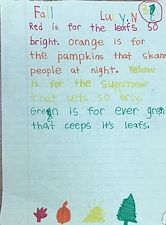 Fall Lucy.N
Red is for the leafs so
bright. orange is for
the pampkins that skare
people at night. Yelow
is for the
that sets so erly.
Green is for ever gren
that ceeps it's leafs.